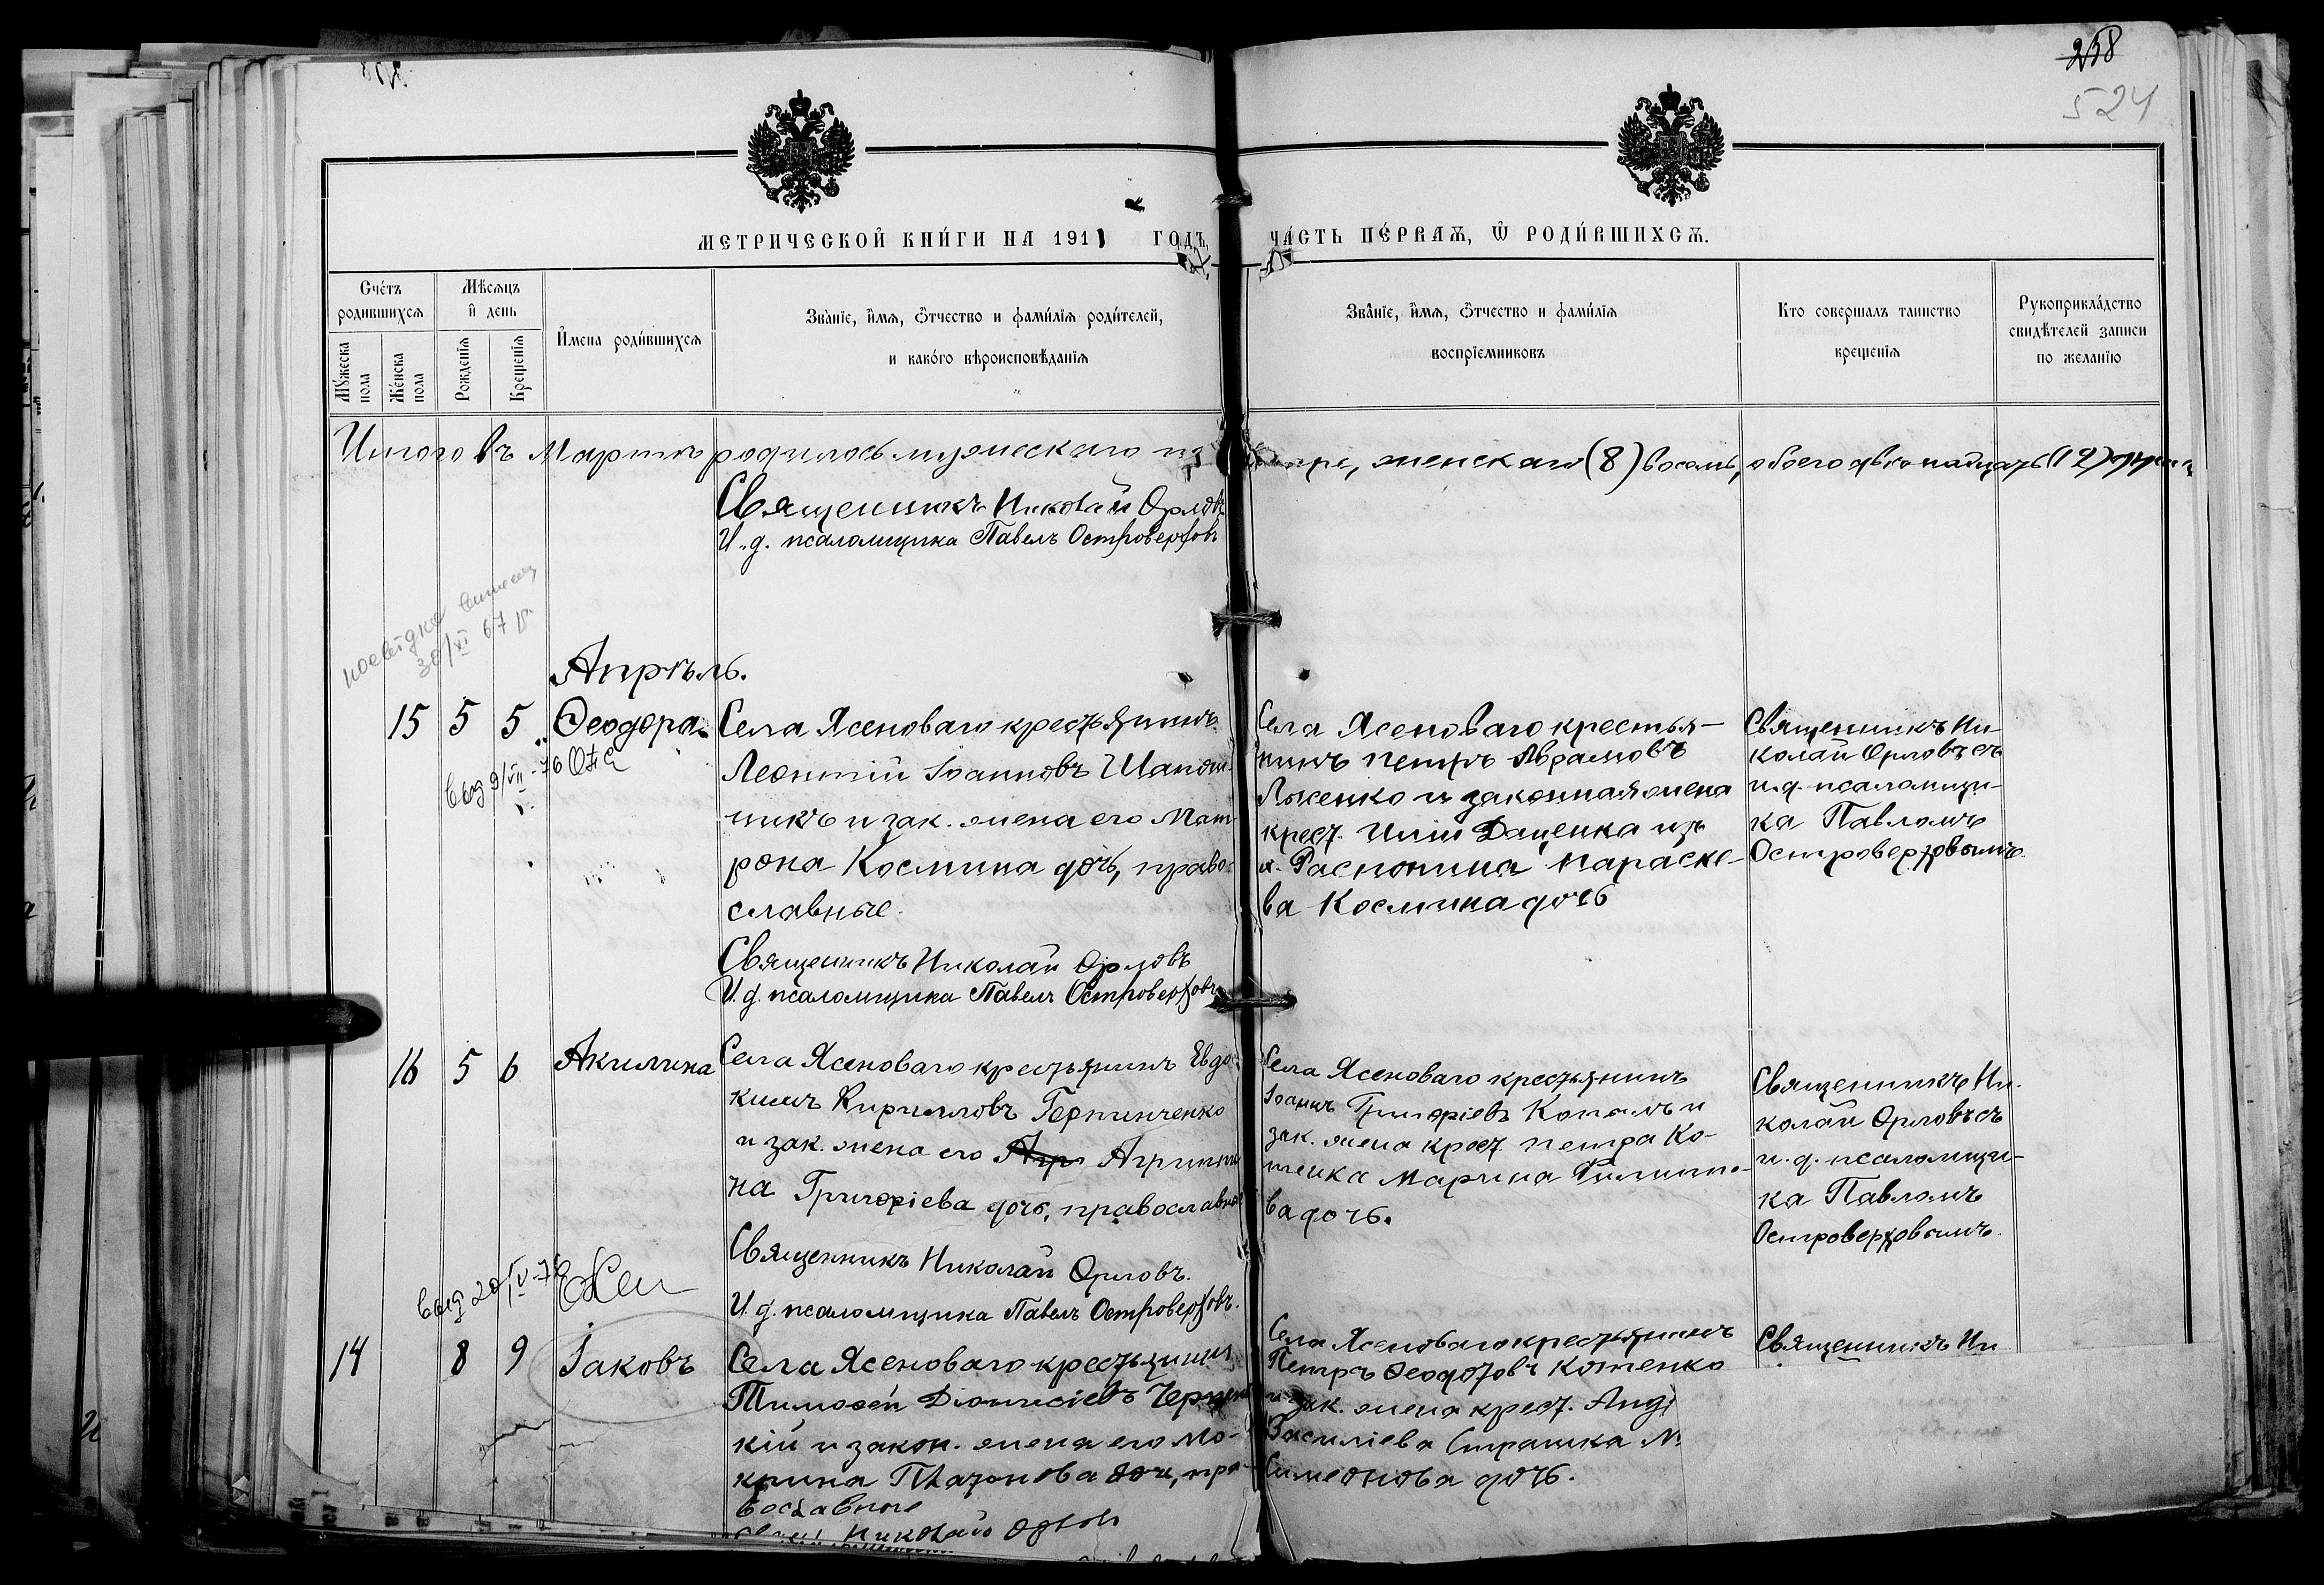 258
524
МЕТРИЧЕСКОЙ КНИ́ГИ НА 1911 ГОДЪ,
ЧА́СТЬ ПЕ́РВАѦ, Ѿ РОДИ́ВШИХСѦ.
Счетъ родившихсѧ
Мѣсѧцъ и день
Мꙋжеска пола
Женска пола
Рожденїѧ
Крещенїѧ
Имена родившихсѧ
Званїе, имѧ, ѿчество и фамилїѧ родителей,
и какого вѣроисповѣданїѧ
Званїе, имѧ, ѿчество и фамилїѧ
воспрїемниковъ
Кто совершалъ таинство
крещенїѧ
Рукоприкладство
свидѣтелей записи
по желанїю
Итого въ Мартѣ родилось мужескаго женскаго (8) восемь, обоего двенадцать (12)
Священникъ Николай Орловъ
И. д. псаломщика Павелъ Островерховъ
30/XI 67 р.
Апрѣль.
15 5 5 Ѳеодора
выд 9/VII-76
Села Ясеноваго крестьянинъ
Леонтій Іоанновъ Шапош-
никъ и зак. жена его Мат-
рона Космина дочь, право-
славные.
Священникъ Николай Орловъ
И. д. псаломщика Павелъ Островерховъ
Села Ясеноваго крестья-
нинъ Петръ Аврамовъ
и законная жена
крест. Иліи Даценка изъ
Параске-
ва Космина дочь
Священникъ Ни-
колай Орловъ съ
и. д. псаломщи-
ка Павломъ
Островерховымъ.
16 5 6 Акилина
Села Ясеноваго крестьянинъ Евдо-
кимъ Кирилловъ Герпинченко
и зак. жена его Агр Агриппи-
на Григоріева дочь, православные
Священникъ Николай Орловъ.
И. д. псаломщика Павелъ Островерховъ.
Села Ясеноваго крестьянинъ
Іоаннъ Григоріевъ и
зак. жена крест. Петра Ко-
тенка Марина Филиппо-
ва дочь.
Священникъ Ни-
колай Орловъ съ
и. д. псаломщи-
ка Павломъ
Островерховымъ.
выд 20/V-76
14 8 9 Іаковъ
Села Ясеноваго крестьянинъ
Тимоѳей Діонисіевъ
кій и закон. жена его Мо-
крина Платонова дочь, пра-
вославные
Николай Орловъ
Села Ясеноваго крестьянинъ
Петръ Ѳеодотовъ Котенко
и зак. жена крест. Анд
Василіева Страшка М
Симеонова дочь.
Священникъ Ни